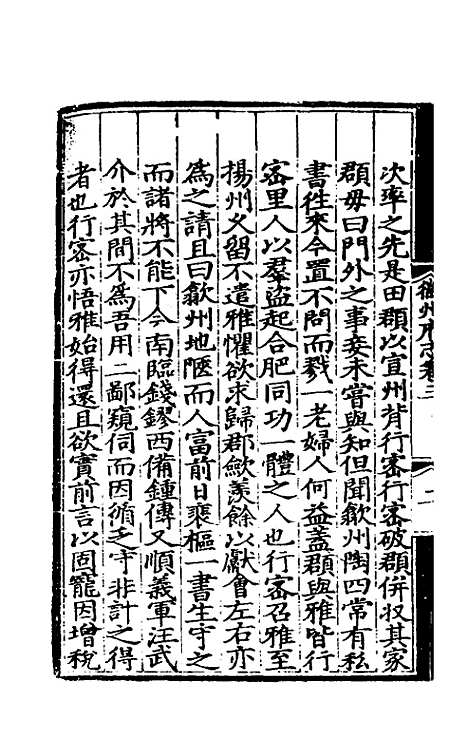 次率之先是田頵以宣州背行宻行宻破頵併收其家
頵毋曰門外之事妾未嘗與知但聞歙州陶四常有私
書徃來今置不問而戮一老婦人何益蓋頵與雅皆行
宻里人以羣盜起合肥同功一體之人也行宻召雅至
揚州乂留不遣雅懼欲求歸郡歛羡餘以獻會左右亦
爲之請且曰歙州地陿而人富前日裴樞一書生守之
而諸將不能下今南臨錢鏐西備鍾傳又順義軍汪武
介於其間不爲吾用二鄙窺伺而因循乏守非計之得
者也行宻亦悟雅始得還且欲實前言以固寵因增稅
徽州府志卷三
二